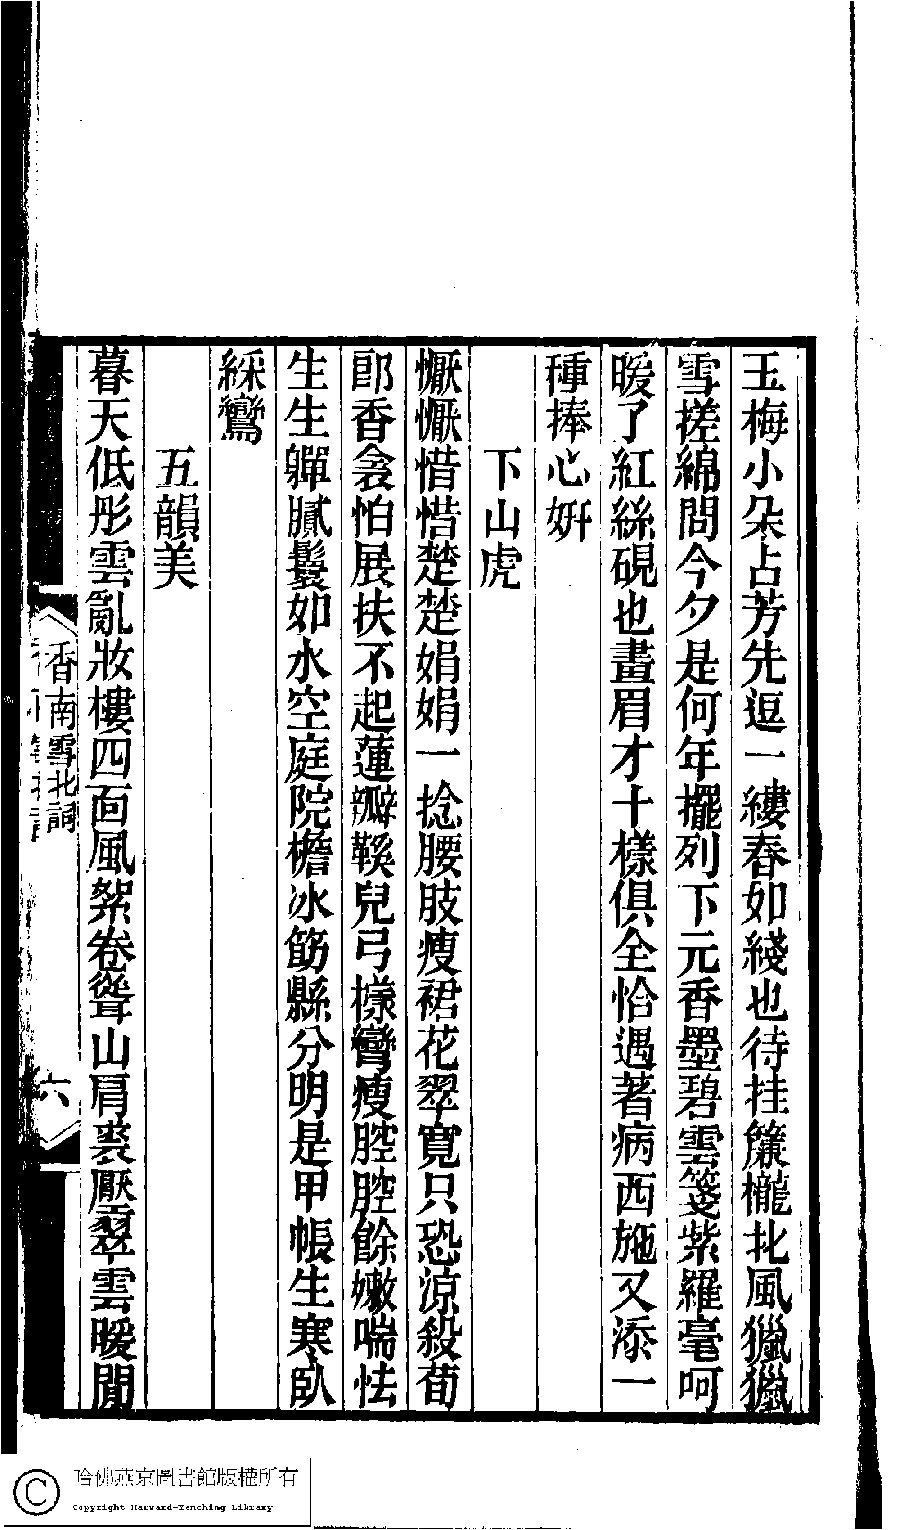 玉梅小朵占芳先逗一縷春如綫也待挂簾櫳北風獵獵
雪搓綿問今夕是何年擺列下元香墨碧雲箋紫羅毫呵
暖了紅絲硯也畫眉才十樣俱全恰遇著病西施又添一
種捧心妍
下山虎
懨懨惜惜楚楚娟娟一捻腰肢瘦裙花翠寬只恐涼殺荀
郎香衾怕展扶不起蓮瓣鞵兒弓樣彎瘦腔腔餘嫩喘怯
生生嚲膩鬟如水空庭院檐冰筯縣分明是甲帳生寒臥
綵鸞
五韻美
暮天低彤雲亂妝樓四面風絮卷聳山肩裘壓翠雲暖閒
香南雪北詞
六
哈佛燕京圖書館版權所有
Copyright Harvard-Yenching Library